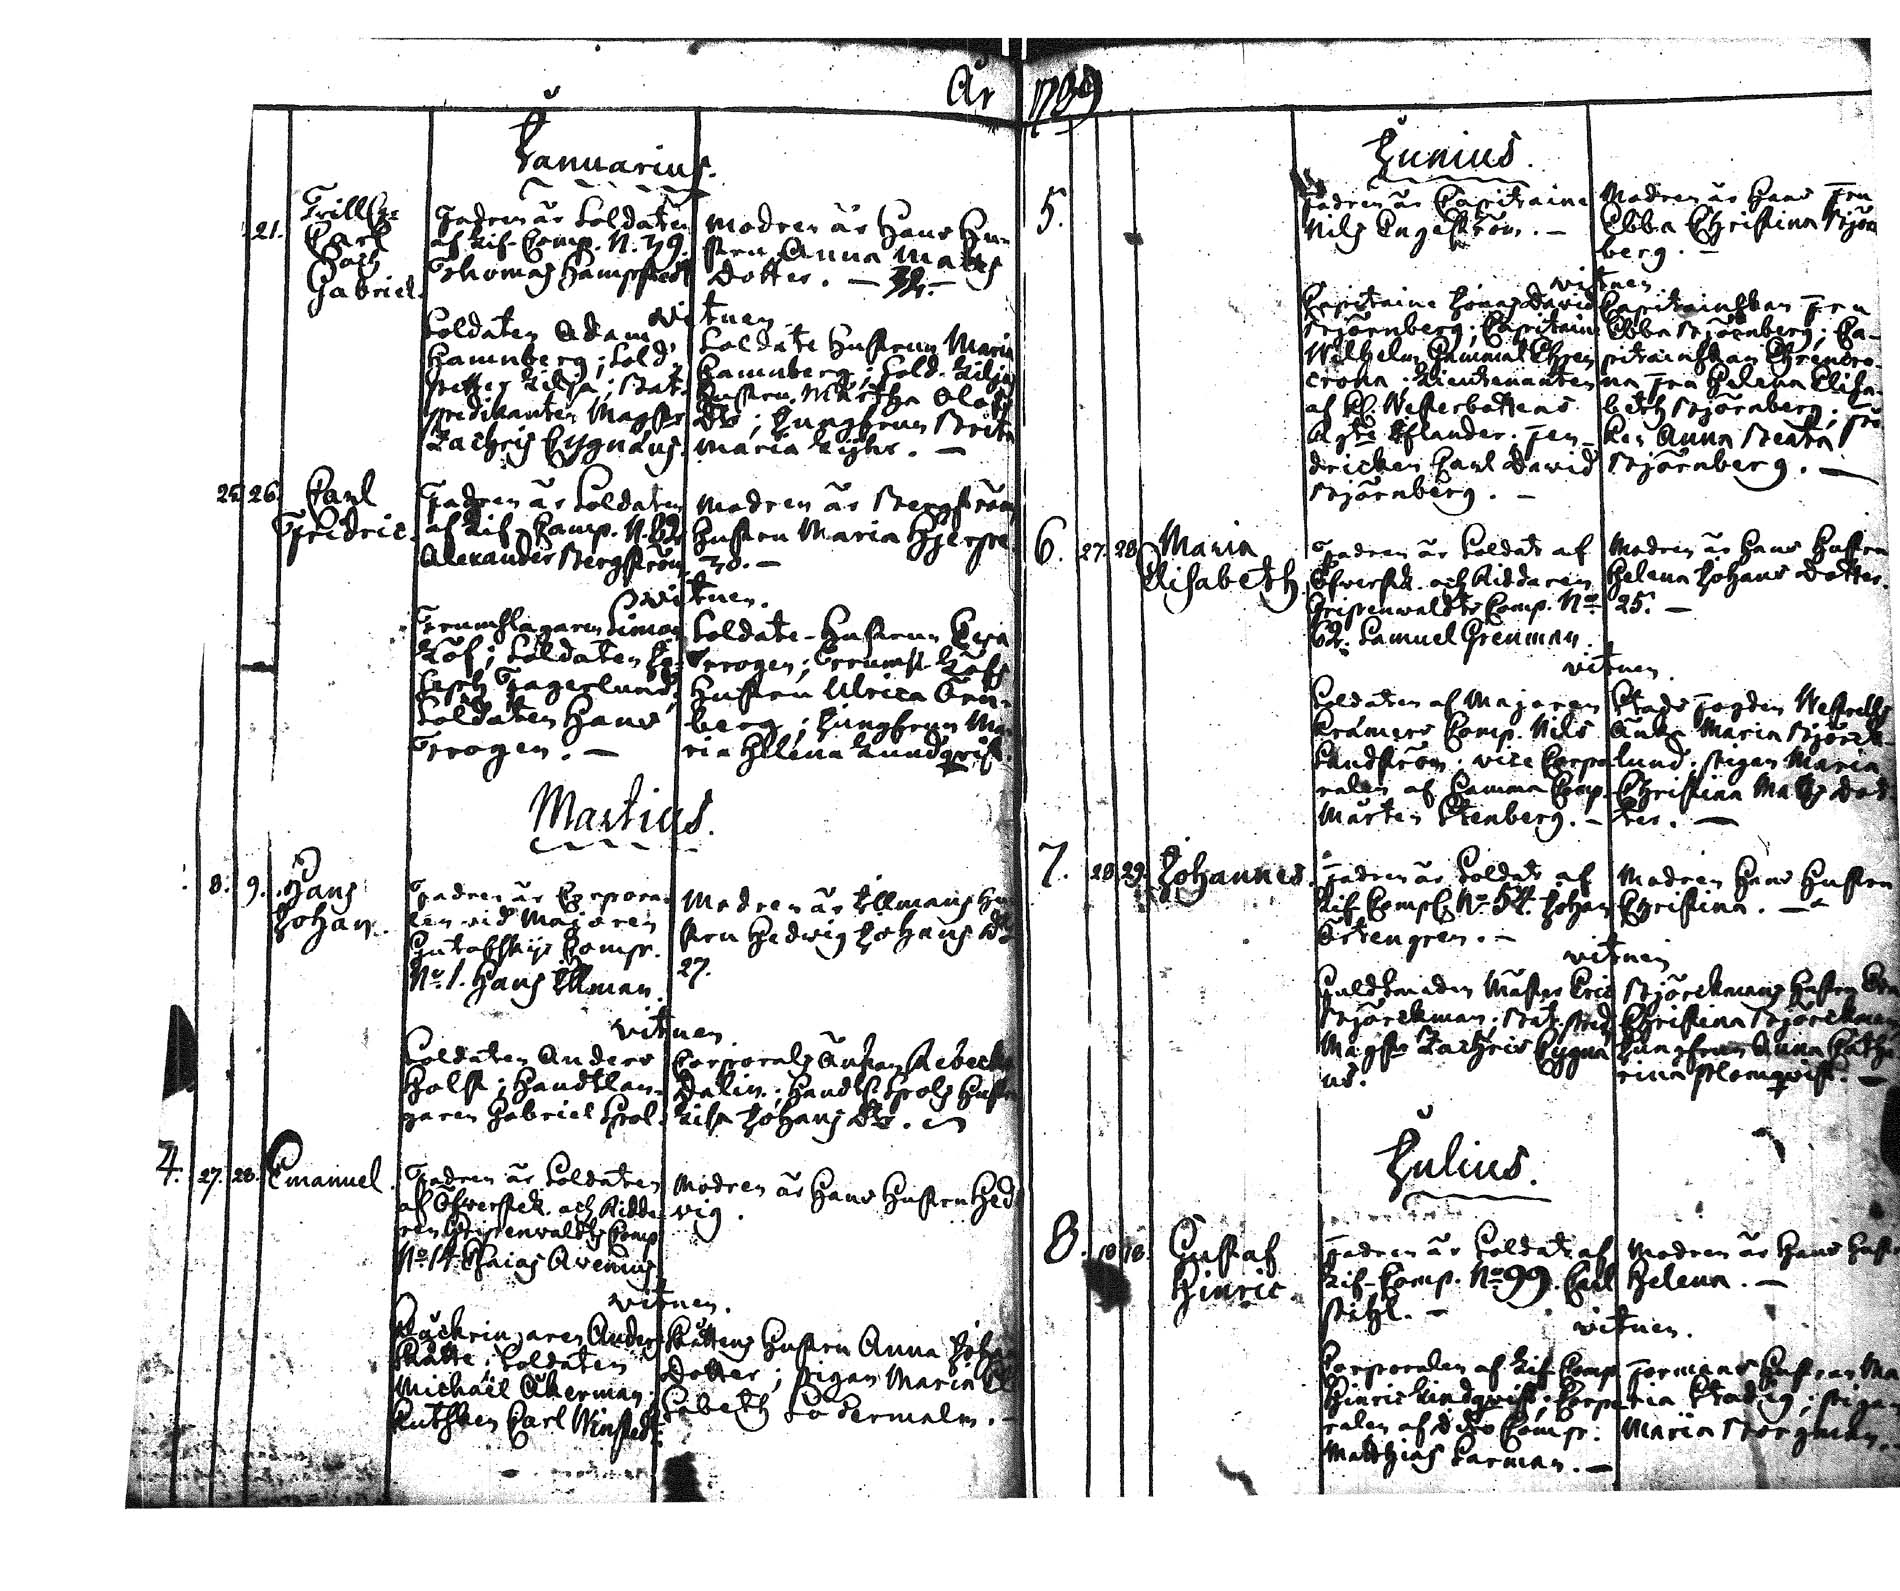 År 1799
Januarius.
21.
Trillg:
Carl
och
Gabriel.
Fadren är Soldaten
af Lif-Comp. N. 79.
Thomas Hampstedt
Modren är Hans Hu-
stru Anna Mats
Dotter. — 32. —
vitnen
Soldaten Adam
Hamnberg; Sold.
Petter Lilja; Bat.
predikanten Magist.
Zachris Cygnæus.
Soldats Hustrun Maria
Hamnberg; Sold. Lilja
Hustru Martha Olofs
Dr; Jungfrun Brita
Maria Lijhr. —
25. 26.
Carl
Fredric.
Fadren är Soldaten
af Lif-Comp. N. 62.
Alexander Bergström
Modren är Bergström
Hustru Maria Hjerpe
30. —
vitnen.
Trumslagaren Simon
Löf; Soldaten Jo-
seph Fagerlund;
Soldaten Hans
Trogen. —
Soldats-Hustrun Ceva
Trogen; Trumsl. Löfs
Hustru Ulrica Öra-
berg; Jungfrun Ma-
ria Hellena Lundqvist.
Martius.
8. 9.
Hans
Johan.
Fadren är Corpora-
len vid Majoren
Gustafschys Comp.
No 1. Hans Ellman.
Modren är Ellmans Hu-
stru Hedwig Johans Dr
27.
vitnen
Soldaten Anders
Holst; Handtlan-
garen Gabriel Spol.
Corporals Änkan Rebecka
Dalin; Handtl. Spols Hustru
Lisa Johans Dr.
4. 27. 28.
Emanuel.
Fadren är Soldaten
af Öfverstl. och Ridda-
ren Gripenwaldts Comp.
No 14. Esaias Avenius
Modren är Hans Hustru Hed-
vig.
vitnen.
Anders
Skatte; Soldaten
Michaël Åkerman;
Kutsken Carl Winstedt.
Skattens Hustru Anna Johans
Dotter; Pigan Maria El-
sabeth Södermalm. —
Junius.
5.
Fadren är Capitaine
Nils Engeström. —
Modren är Hans Fru
Ebba Christina Björn
berg. —
vitnen
Capitaine Jonas David
Björnberg; Capitaine
Wilhelm Gammal Ehren
crona. Lieutenanten
af Kl. Westerbottens
Rgte Eflander. Fen-
dricken Carl David
Björnberg. —
Capitainskan Fru
Ebba Björnberg; Ca-
pitainskan Ehrencro-
na Fru Helena Elisa-
beth Björnberg. Frö
ken Anna Beata
Björnberg. —
6. 27. 28.
Maria
Elisabeth.
Fadren är Soldat af
Öfverstl. och Riddaren
Gripenwaldts Comp. No
62. Samuel Grenman.
Modren är Hans Hustru
Helena Johans Dotter.
25. —
vitnen
Soldaten af Majoren
Kramers Comp. Nils
Sandström. vice Corpo
ralen af Samma Comp.
Mårten Stenberg. —
Stads Fogden Westrells
Änka Maria Björck-
lund. Pigan Maria
Christina Mats Dot-
ter. —
7. 28. 29.
Johannes.
Fadren är Soldat af
Lif Comp. No 54. Johan
Östengren. —
Modren Hans Hustru
Christina. —
vitnen
Guldsmeden Mäster Eric
Björckman; Bat. Pred.
Magist. Zachris Cygnæ
us.
Björckmans Hustru Eva
Christina Björckman
Jungfrun Anna Catha
rina Blomqvist. —
Julius.
8. 18.
Gustaf
Hinric
Fadren är Soldat af
Lif-Comp. No 99. Carl
Pihl. —
Modren är Hans Hustru
Helena. —
vitnen.
Corporalen af Lif Comp
Hinric Lindqvist. Corpo
ralen af dito Comp.
Matthias Carman. —
Formans Hustrun Ma
ria Stadig; Pigan
Maria Borgman.